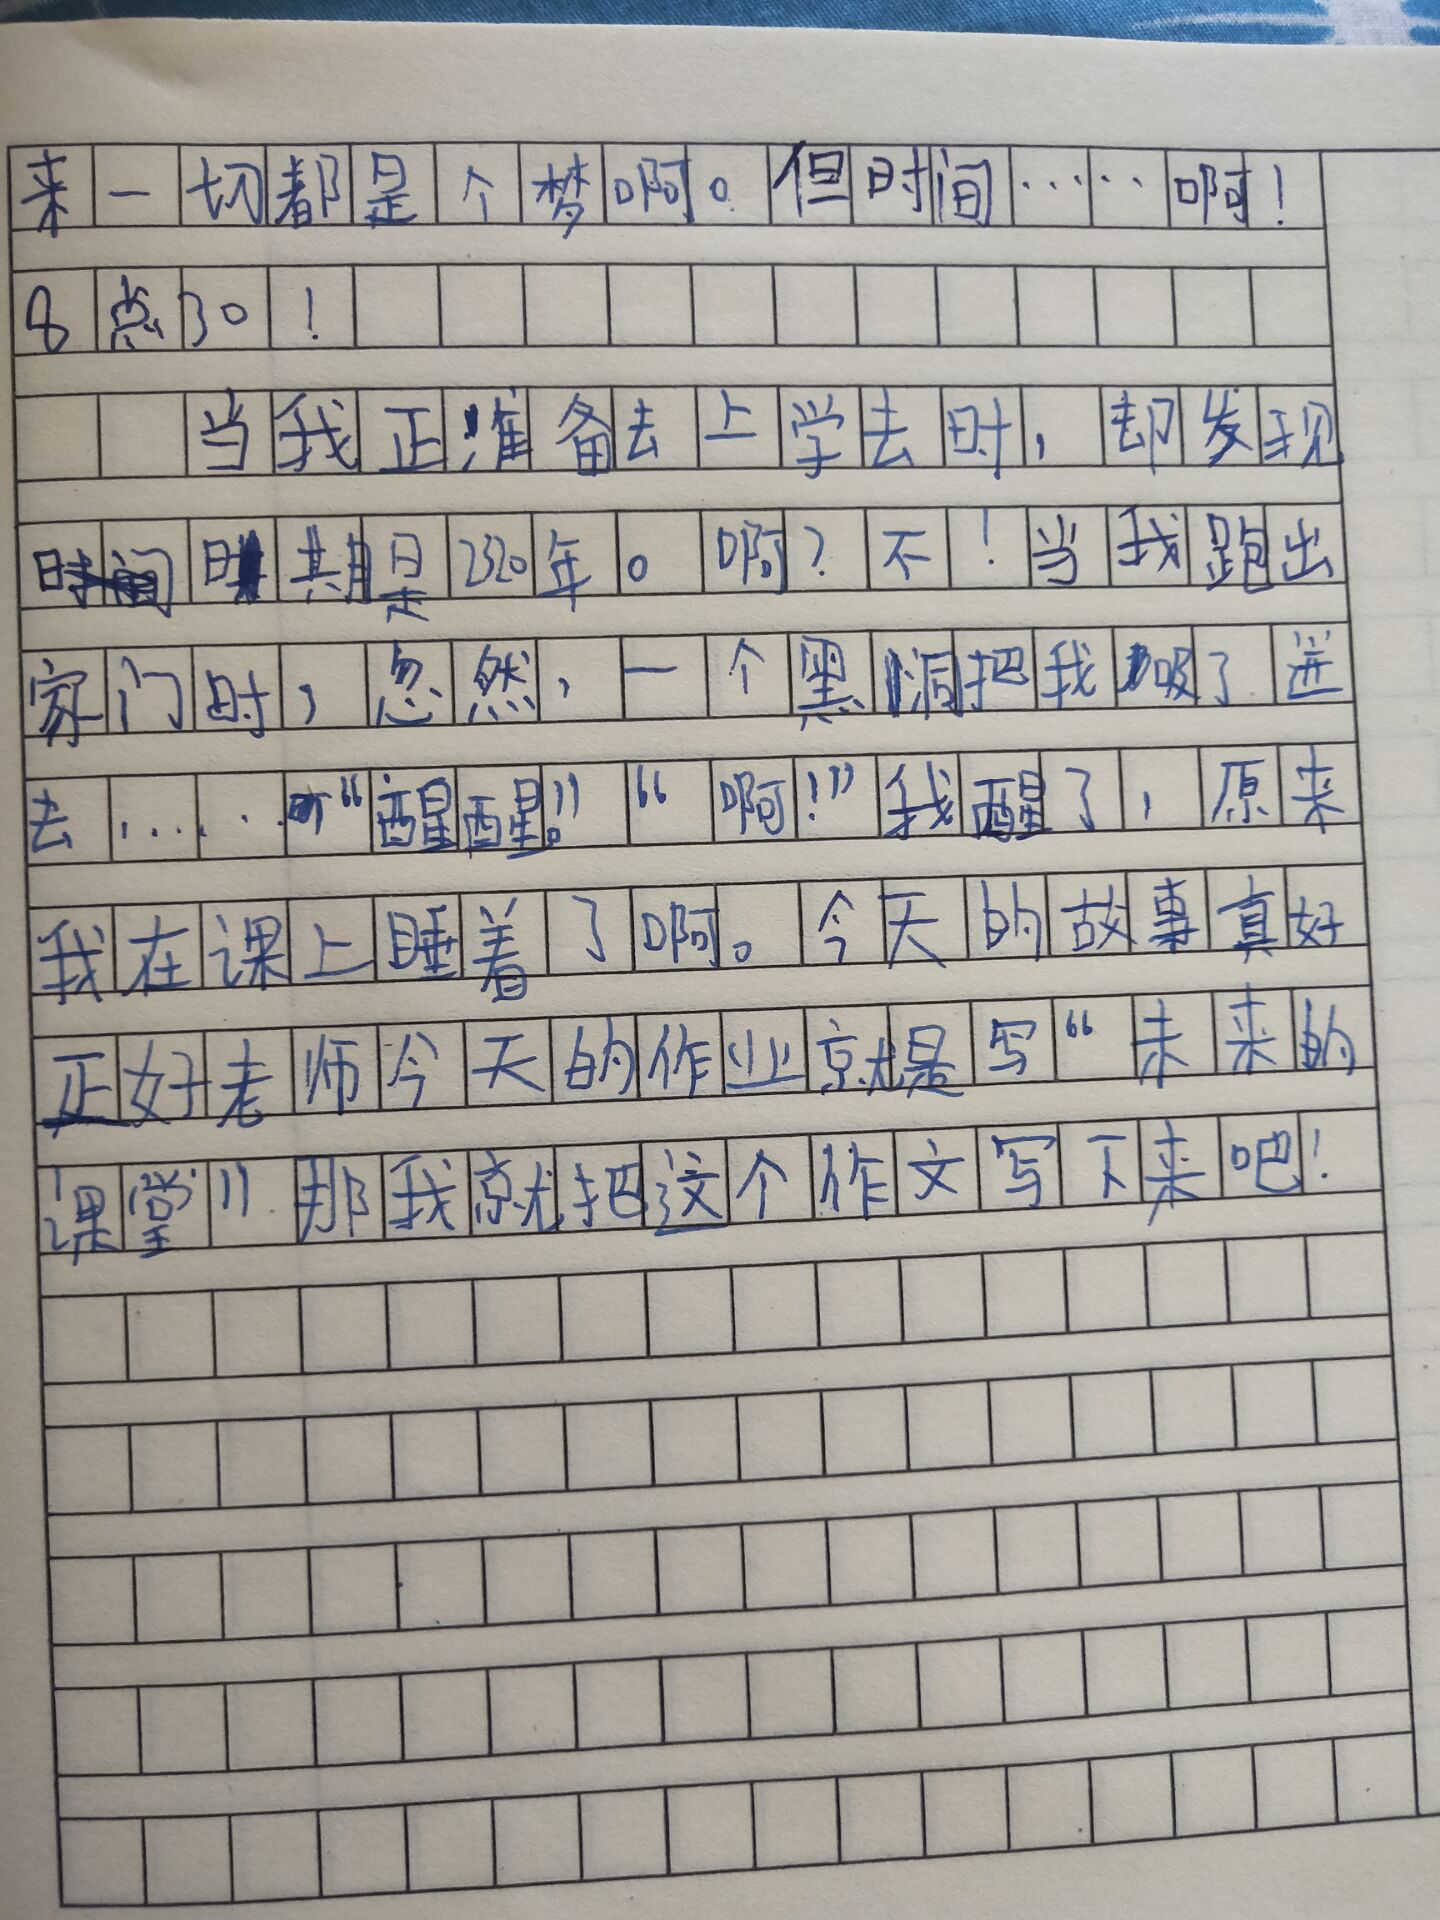 来一切都是个梦啊。但时间……啊！
8点30！
当我正准备去上学去时，却发现
时间日期是2320年。啊？不！当我跑出
家门时，忽然，一个黑洞把我吸了进
去……“醒醒。”“啊！”我醒了，原来
我在课上睡着了啊。今天的故事真好
正好老师今天的作业就是写“未来的
课堂”那我就把这个作文写下来吧！